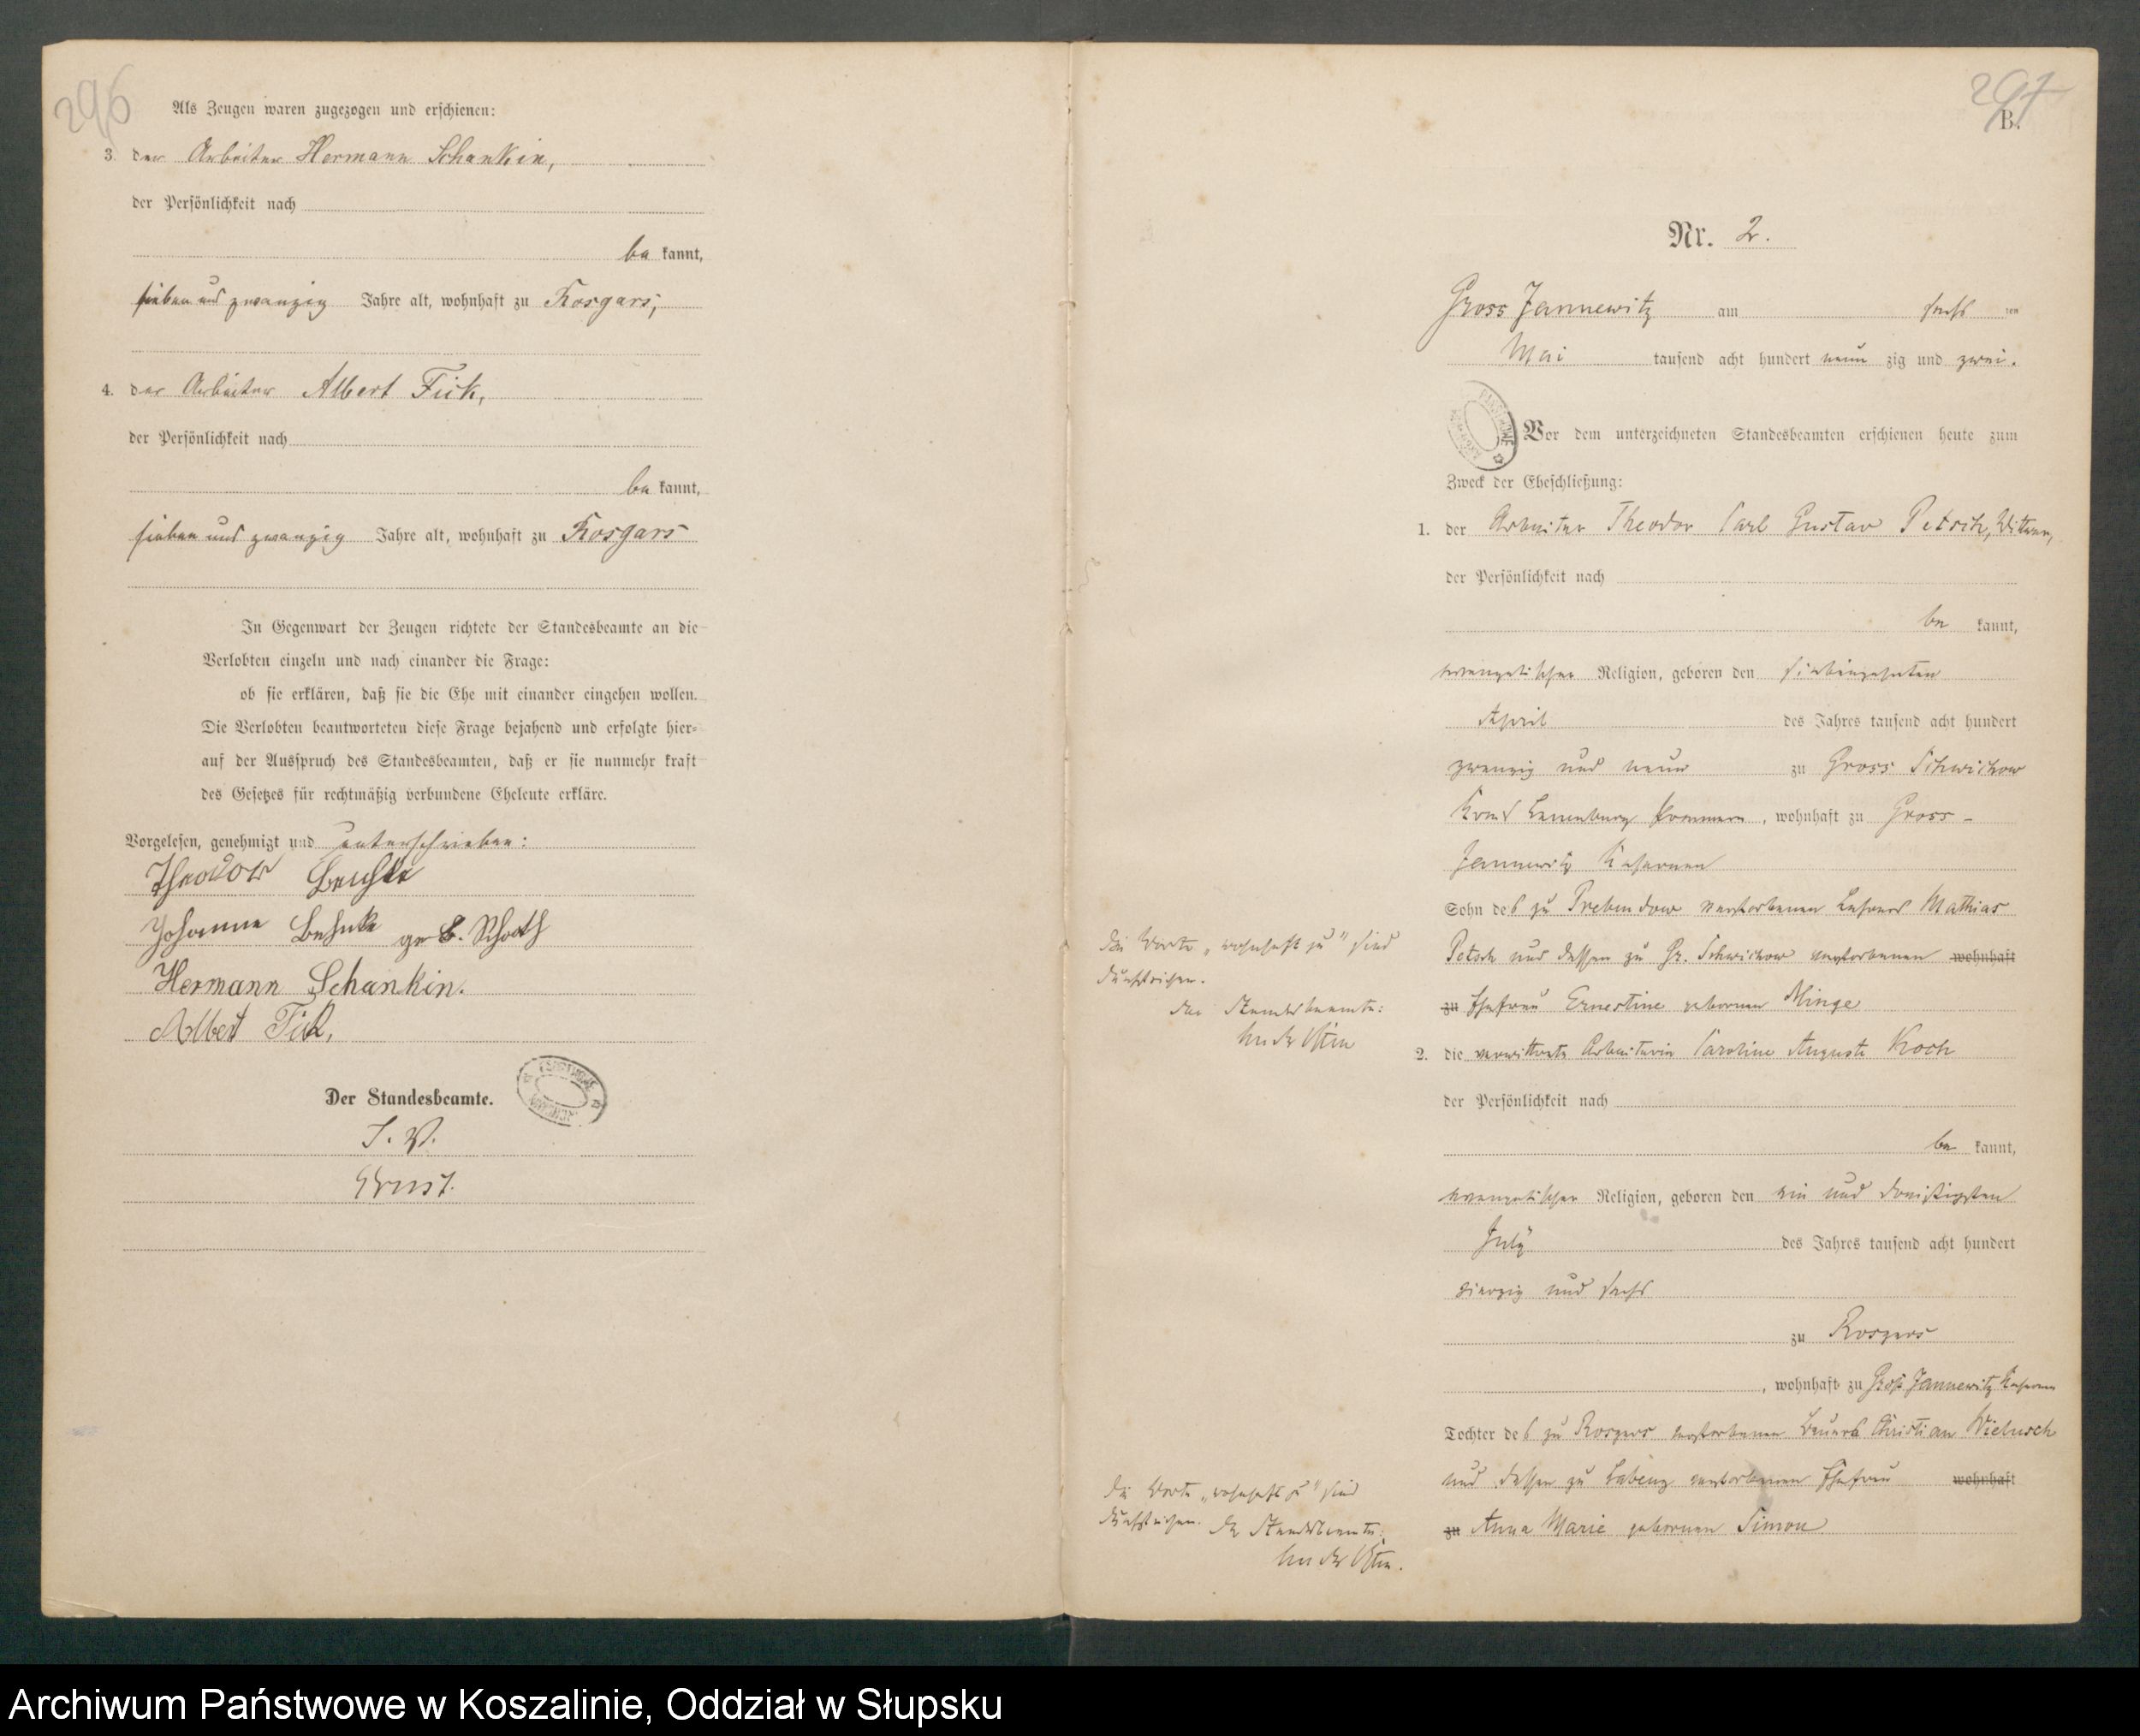 296
Als Zeugen waren zugezogen und erschienen:
3. der Arbeiter Hermann Schankin,
der Persönlichkeit nach
be kannt,
sieben und zwanzig Jahre alt, wohnhaft zu Rosgars,
4. der Arbeiter Albert Fick,
der Persönlichkeit nach
be kannt,
sieben und zwanzig Jahre alt, wohnhaft zu Rosgars
In Gegenwart der Zeugen richtete der Standesbeamte an die
Verlobten einzeln und nach einander die Frage:
ob sie erklären, daß sie die Ehe mit einander eingehen wollen.
Die Verlobten beantworteten diese Frage bejahend und erfolgte hier-
auf der Ausspruch des Standesbeamten, daß er sie nunmehr kraft
des Gesetzes für rechtmäßig verbundene Eheleute erkläre.
Vorgelesen, genehmigt und unterschrieben:
Theodor
Johanne Behnke geb.
Hermann Schankin.
Albert Fick,
Der Standesbeamte.
I. V.
Ernst.
297
B.
Nr. 2.
Gross Jannewitz am sechs ten
Mai tausend acht hundert neun zig und zwei.
Vor dem unterzeichneten Standesbeamten erschienen heute zum
Zweck der Eheschließung:
1. der Arbeiter Theodor Carl Gustav Petsch, Witwer,
der Persönlichkeit nach
be kannt,
evangelischer Religion, geboren den siebenzehnten
April des Jahres tausend acht hundert
zwanzig und neun zu Gross Schwichow
Kreis Lauenburg Pommern, wohnhaft zu Gross-
Jannewitz
Sohn des zu Prebendow verstorbenen Lehrers Mathias
Petsch und dessen zu Gr. Schwichow verstorbenen wohnhaft
zu Ehefrau Ernestine geborenen Minge
die Worte „wohnhaft zu" sind
durchstrichen.
Der Standesbeamte:
von der Osten
2. die verwittwete Arbeiterin Caroline Auguste Koch
der Persönlichkeit nach
be kannt,
evangelischer Religion, geboren den ein und dreißigsten
July des Jahres tausend acht hundert
vierzig und sechs
zu Rosgars
, wohnhaft zu Groß Jannewitz
Tochter des zu Rosgars verstorbenen Bauers Christian Wiebusch
und dessen zu Labenz verstorbenen Ehefrau wohnhaft
zu Anna Marie geborenen Simon
die Worte „wohnhaft zu" sind
durchstrichen. Der Standesbeamte:
von der Osten.
Archiwum Państwowe w Koszalinie, Oddział w Słupsku